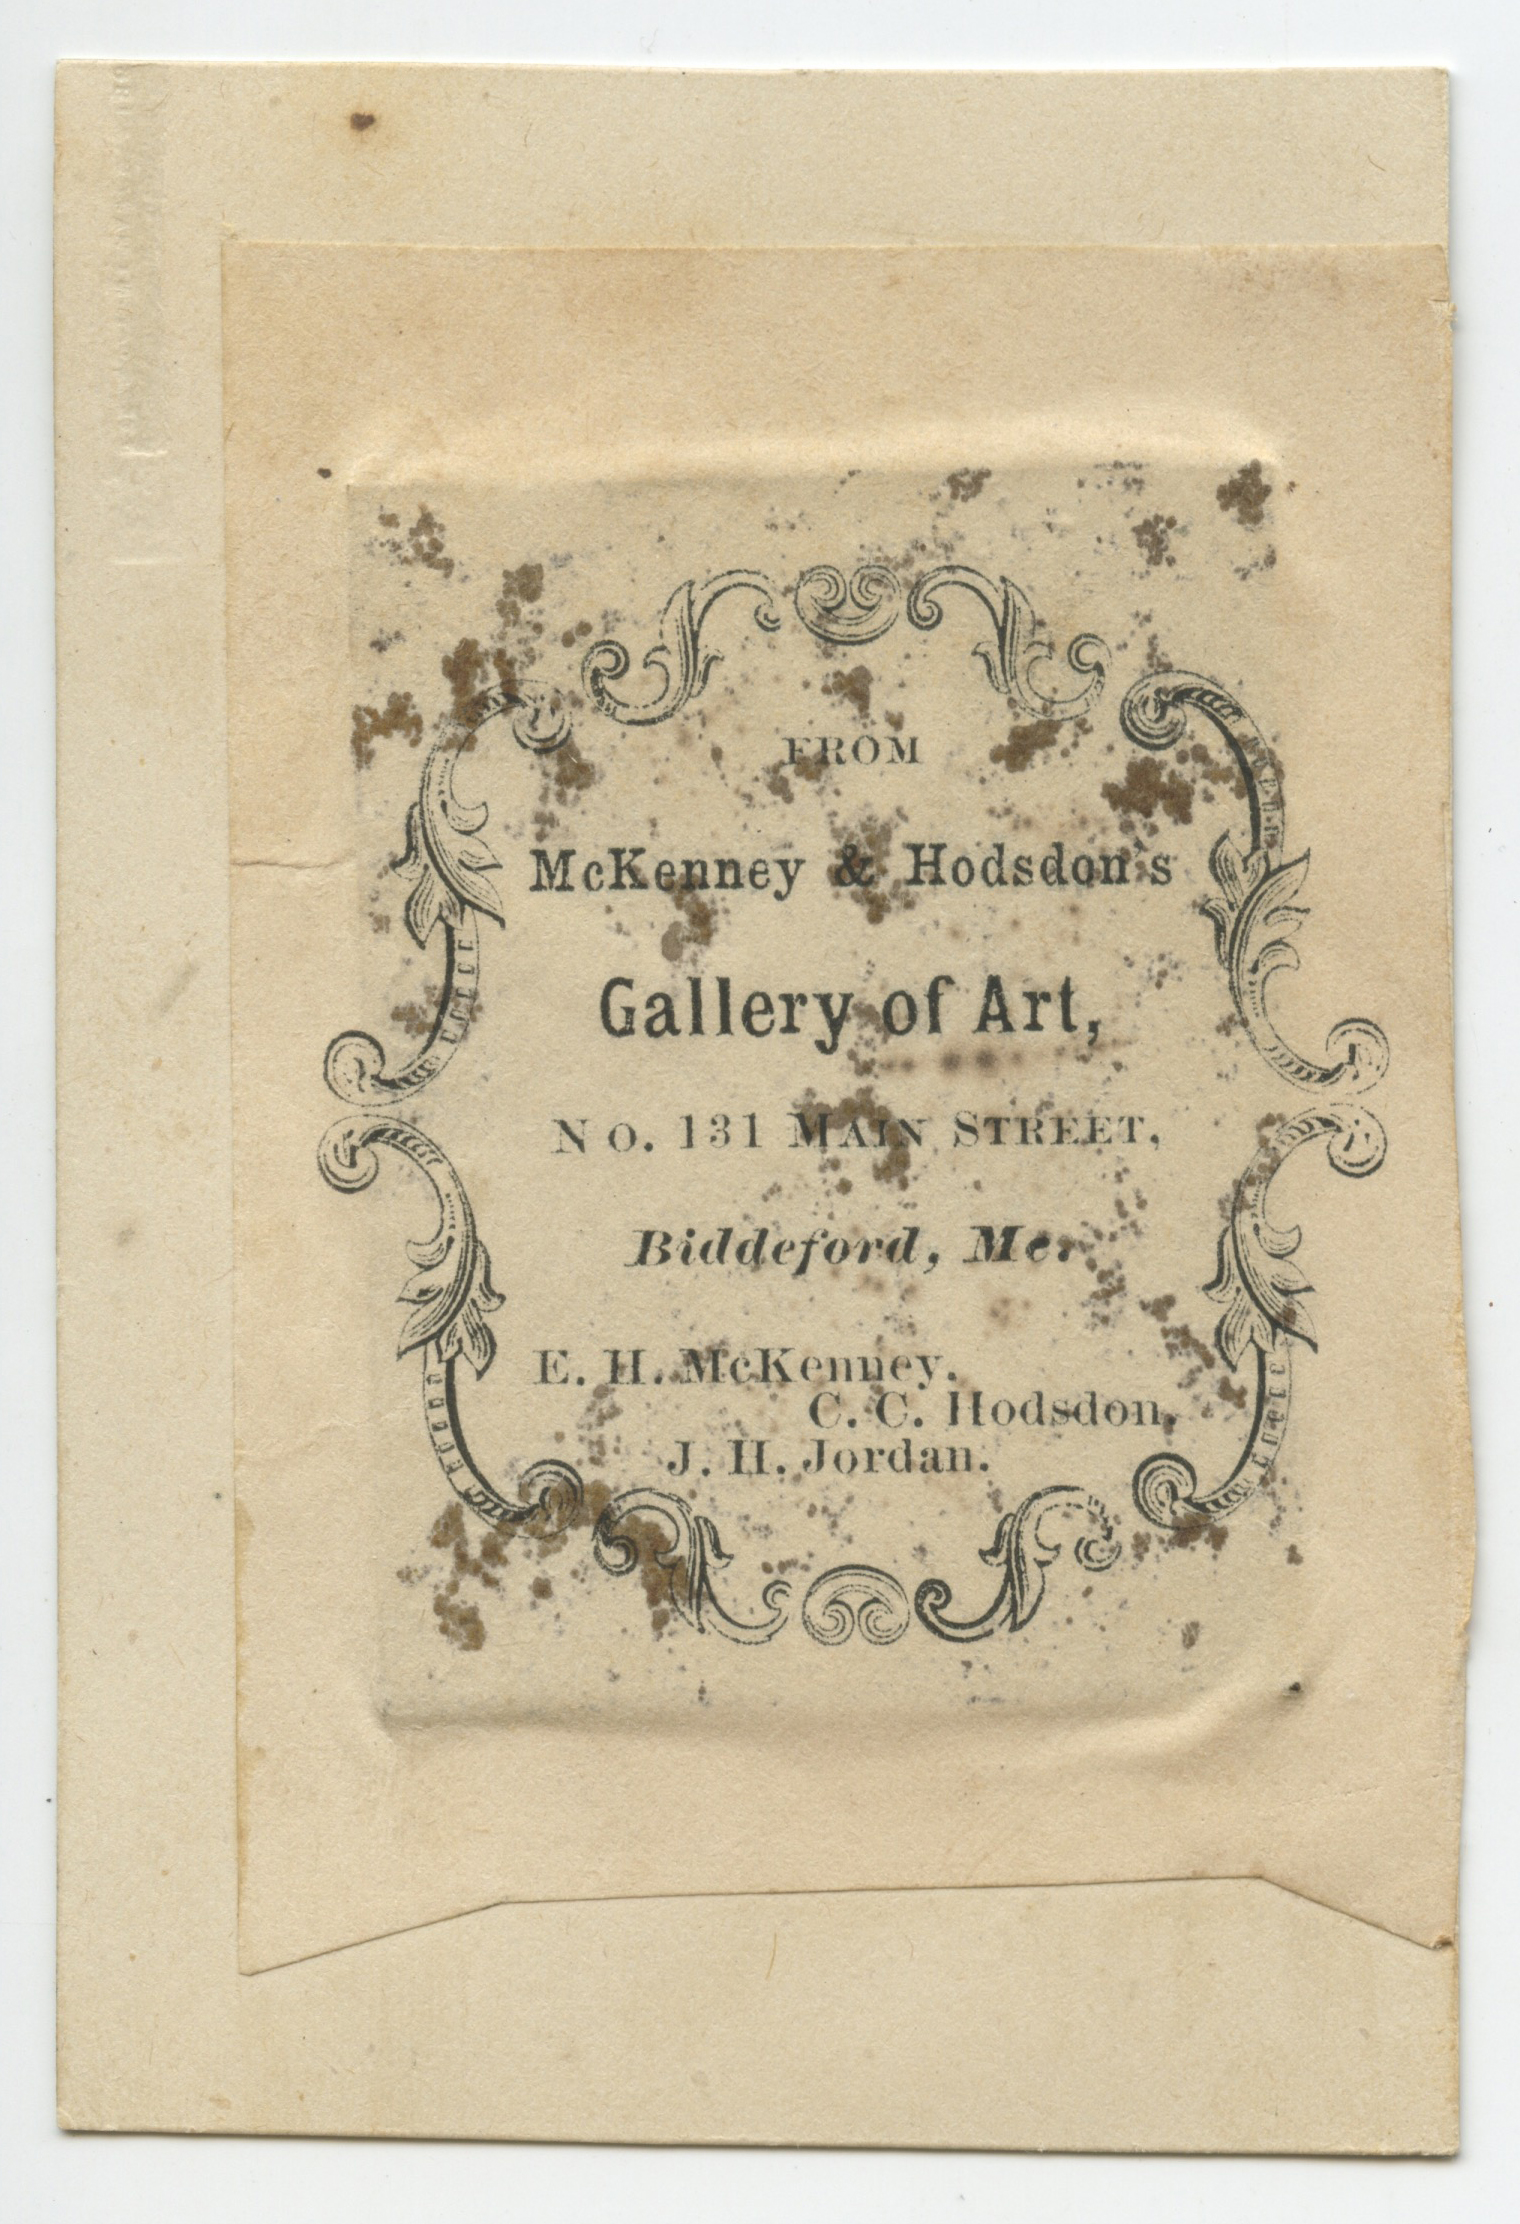 FROM
McKenney & Hodsdon's
Gallery of Art,
No. 131 MAIN STREET,
Biddeford, Me.
E. H. McKenney.
C. C. Hodsdon,
J. H. Jordan.